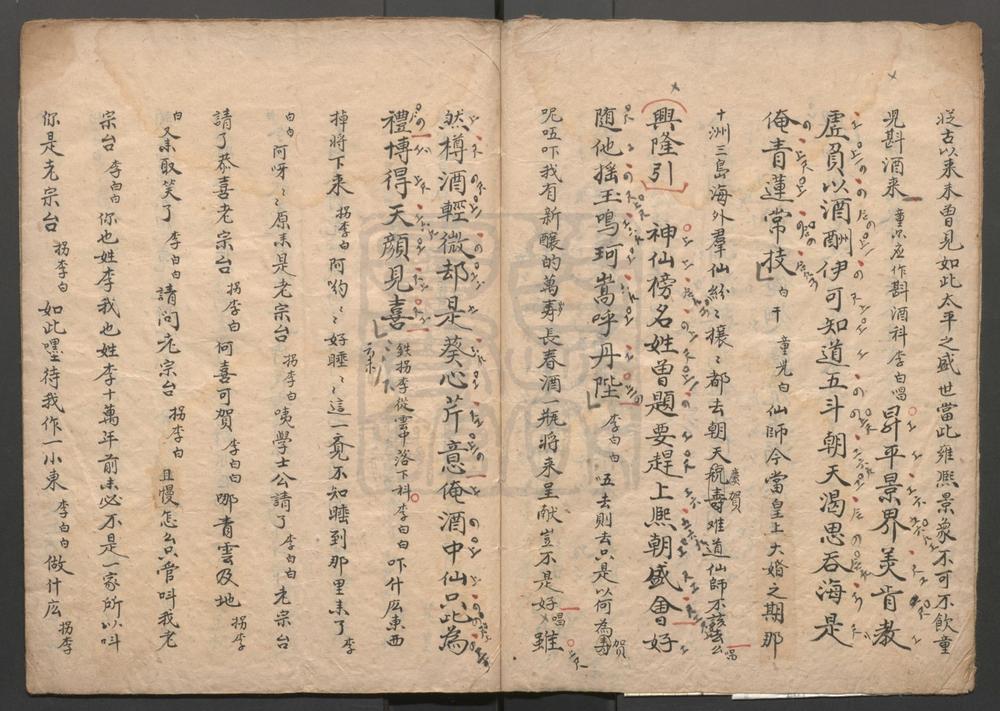 從古以来未曾見如此太平之盛世當此雍熙景象不可不飲童
児斟酒来 童児应作斟酒科李白唱 昇平景界羙肯教
虛負以酒酬伊可知道五斗朝天渴思吞海是
俺青蓮常技 白 童児白 仙師今當皇上大婚之期那
十洲三島海外羣仙紛〻攘〻都去朝天慶賀难道仙師不該去么 唱
興隆引 神仙榜名姓曾題要趕上熙朝盛會好
随他搖玉鳴珂嵩呼丹陛 李白白 去則去只是以何為賀
呢唔吓我有新釀的萬寿長春酒一瓶将来呈献豈不是好 唱 雖
然樽酒輕微却是葵心芹意俺酒中仙只此為
禮博得天顔見喜 鉄拐李從雲中落下科 李白白 吓什庅東西
掉将下来 拐李白 阿喲〻〻好睡〻〻這一竟不知睡到那里来了 李
白白 阿呀〻原来是老宗台 拐李白 咦學士公請了 李白白 老宗台
請了恭喜老宗台 拐李白 何喜可賀 李白白 哪青雲及地 拐李
白 又来取笑了 李白白 請问老宗台 拐李白 且慢怎么只管叫我老
宗台 李白白 你也姓李我也姓李十萬年前未必不是一家所以叫
你是老宗台 拐李白 如此嘿待我作一小東 李白白 做什庅 拐李